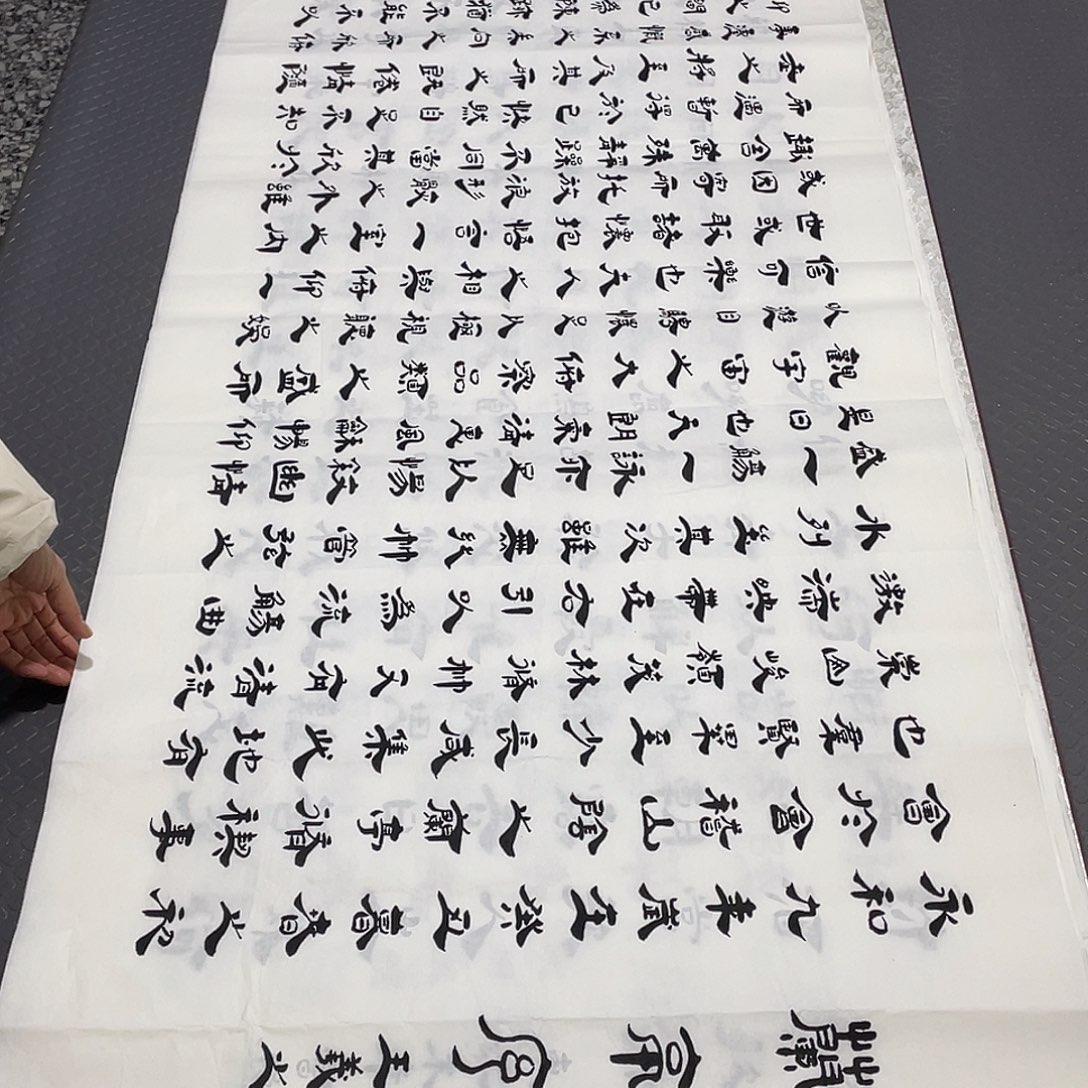 蘭亭序 王羲之
永和九年歲在癸丑暮春之初
會於會稽山陰之蘭亭脩禊事
也群賢畢至少長咸集此地有
崇山峻領茂林脩竹又有清流
激湍映帶左右引以為流觴曲
水列坐其次雖無絲竹管弦之
盛一觴一詠亦足以暢敘幽情
是日也天朗氣清惠風和暢仰
觀宇宙之大俯察品類之盛所
以遊目騁懷足以極視聽之娛
信可樂也夫人之相與俯仰一
世或取諸懷抱悟言一室之內
或因寄所托放浪形骸之外雖
趣舍萬殊靜躁不同當其欣於
所遇暫得於己快然自足不知
老之將至及其所之既倦情隨
事遷感慨係之矣向之所欣俛
仰之間已為陳跡猶不能不以